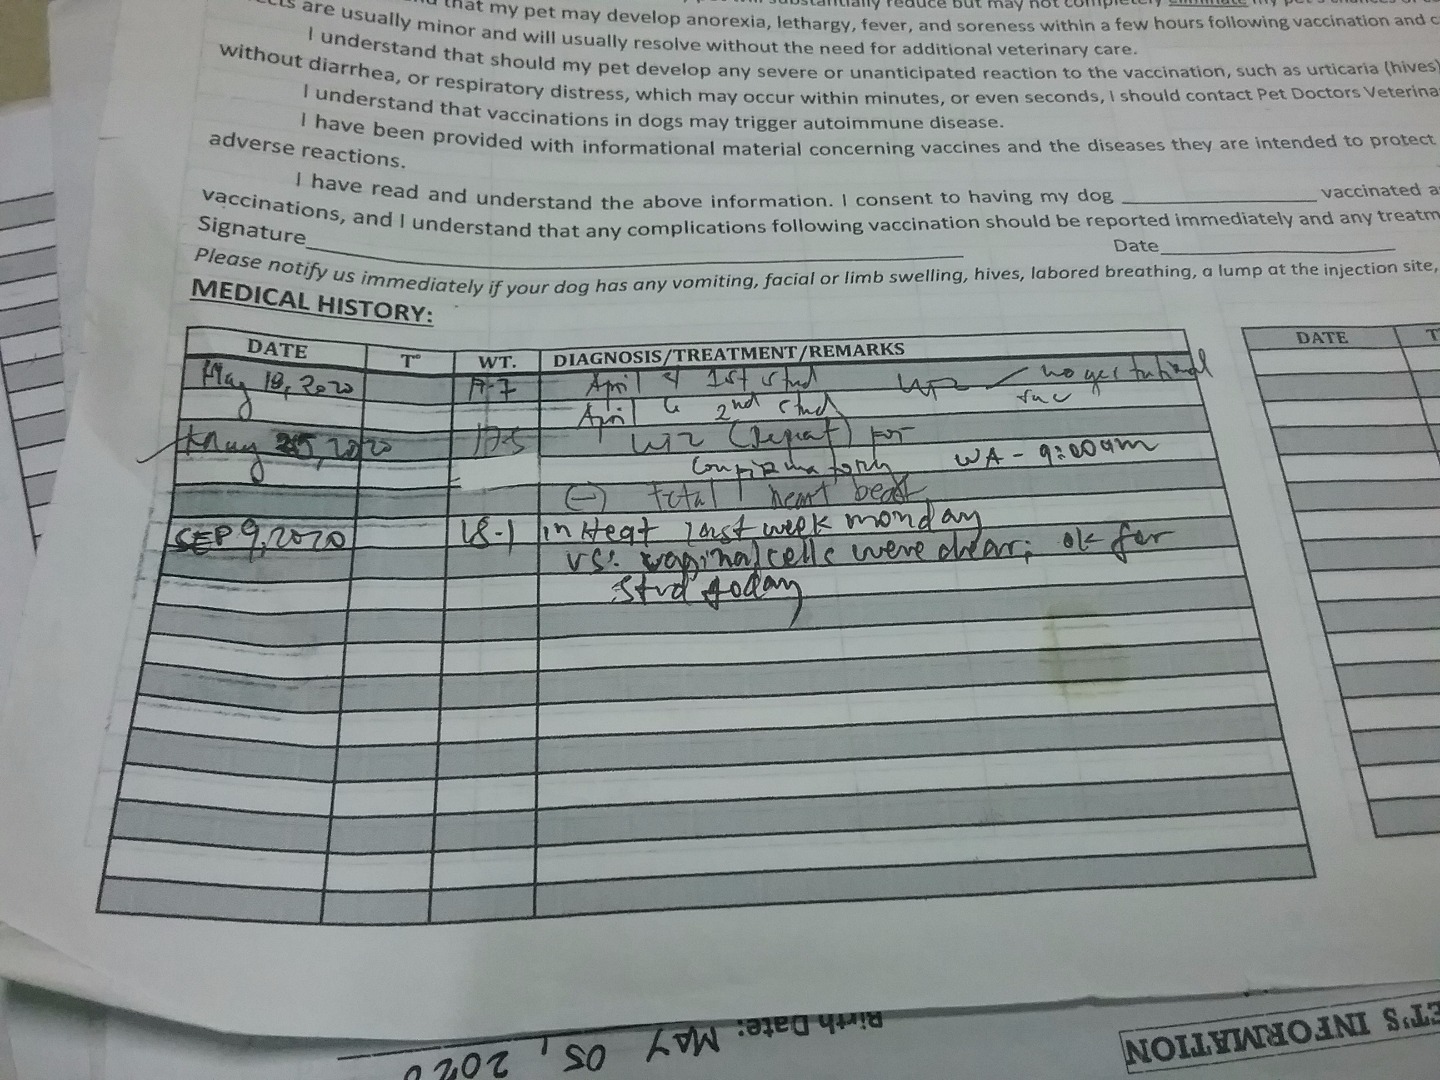 that my pet may develop anorexia, lethargy, fever, and soreness within a few hours following vaccination and
are usually minor and will usually resolve without the need for additional veterinary care.
I understand that should my pet develop any severe or unanticipated reaction to the vaccination, such as urticaria (hives)
without diarrhea, or respiratory distress, which may occur within minutes, or even seconds, I should contact Pet Doctors
I understand that vaccinations in dogs may trigger autoimmune disease.
I have been provided with informational material concerning vaccines and the diseases they are intended to protect
adverse reactions.
I have read and understand the above information. I consent to having my dog ____________ vaccinated
vaccinations, and I understand that any complications following vaccination should be reported immediately and any
Signature____________ Date____________
Please notify us immediately if your dog has any vomiting, facial or limb swelling, hives, labored breathing, a lump at the injection site,
MEDICAL HISTORY:
DATE T° WT. DIAGNOSIS/TREATMENT/REMARKS DATE
May 18, 2020 17-7 April 4 1st stud
April 6 2nd stud
May 25, 2020 17-5 (repeat) for
confirmatory WA - 9:00am
(-) fetal heart beat
SEP 9, 2020 18-1 in Heat last week monday
VS: vaginal cells were clear; ok for
stud today
ET'S INFORMATION
Birth Date: MAY 05, 2020